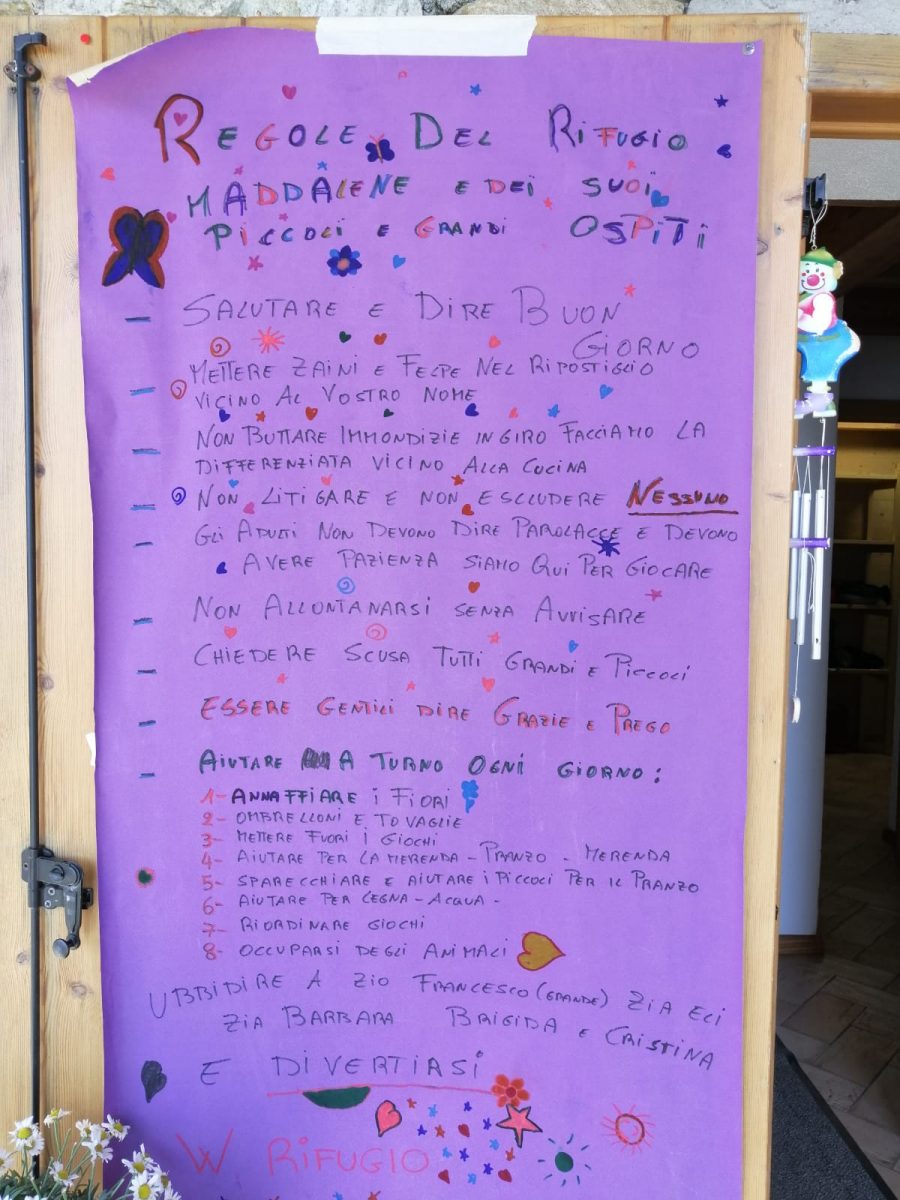 REGOLE DEL RIFUGIO
MADDALENE E DEI SUOI
PICCOLI E GRANDI OSPITI
- SALUTARE E DIRE BUON
GIORNO
- METTERE ZAINI E FELPE NEL RIPOSTIGLIO
VICINO AL VOSTRO NOME
- NON BUTTARE IMMONDIZIE IN GIRO FACCIAMO LA
DIFFERENZIATA VICINO ALLA CUCINA
- NON LITIGARE E NON ESCLUDERE NESSUNO
- GLI ADULTI NON DEVONO DIRE PAROLACCE E DEVONO
AVERE PAZIENZA SIAMO QUI PER GIOCARE
- NON ALLONTANARSI SENZA AVVISARE
- CHIEDERE SCUSA TUTTI GRANDI E PICCOLI
- ESSERE GENTILI DIRE GRAZIE E PREGO
- AIUTARE A TURNO OGNI GIORNO:
1- ANNAFFIARE I FIORI
2- OMBRELLONI E TOVAGLIE
3- METTERE FUORI I GIOCHI
4- AIUTARE PER LA MERENDA - PRANZO - MERENDA
5- SPARECCHIARE E AIUTARE I PICCOLI PER IL PRANZO
6- AIUTARE PER LEGNA - ACQUA -
7- RIORDINARE GIOCHI
8- OCCUPARSI DEGLI ANIMALI
UBBIDIRE A ZIO FRANCESCO (GRANDE) ZIA ELI
ZIA BARBARA BRIGIDA E CRISTINA
E DIVERTIRSI
W RIFUGIO